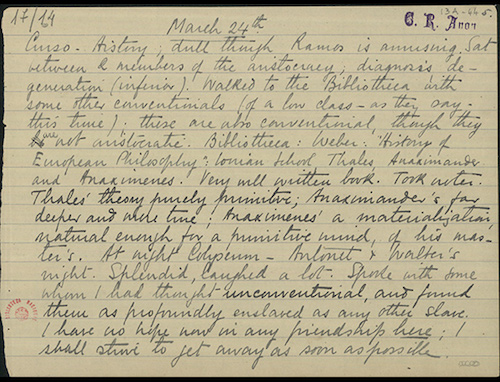 17/14
13A-46
C. R. Anon
March 24th
Curso - History; dull though Ramos is amusing. Sat
between 2 members of the aristocracy; diagnosis de-
generation (inferior). Walked to the Bibliotheca with
some other conventionals (of a low class - as they say -
this time): these are also conventional, though they
are not aristocratic. Bibliotheca: Weber: "History of
European Philosophy": Ionian School, Thales, Anaximander
and Anaximenes. Very well written book. Took notes.
Thales' theory purely primitive; Anaximander's far
deeper and more true; Anaximenes' a materialization,
natural enough for a primitive mind, of his mas-
ter's. At night Colyseum - Antonet & Walter's
night. Splendid, laughed a lot. Spoke with some
whom I had thought unconventional, and found
them as profoundly enslaved as any other slave.
I have no hope now in any friendship here; I
shall strive to get away as soon as possible.